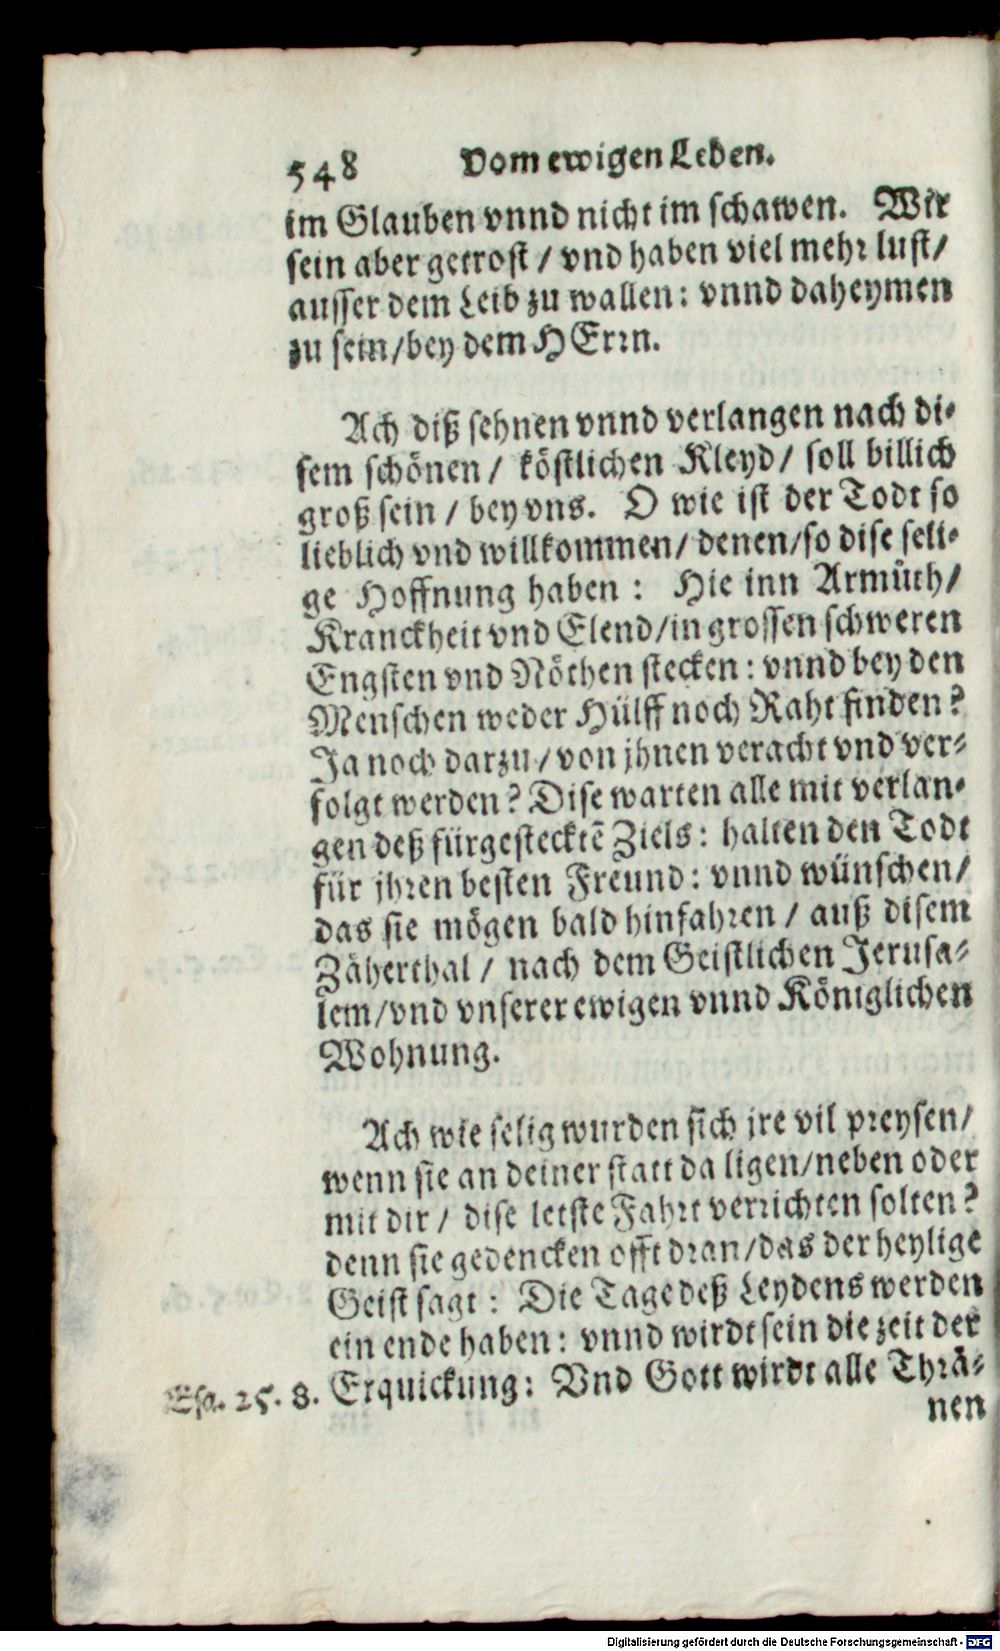 548 Vom ewigen Leben.
im Glauben vnnd nicht im schawen. Wir
sein aber getrost / vnd haben viel mehr lust/
ausser dem Leib zu wallen: vnnd daheymen
zu sein/bey dem HErrn.
Ach diß sehnen vnnd verlangen nach di-
sem schönen / köstlichen Kleyd / soll billich
groß sein / bey vns. O wie ist der Todt so
lieblich vnd willkommen/ denen/so dise seli-
ge Hoffnung haben: Hie inn Armůth/
Kranckheit vnd Elend/in grossen schweren
Engsten vnd Nöthen stecken: vnnd bey den
Menschen weder Hülff noch Raht finden?
Ja noch darzu / von jhnen veracht vnd ver-
folgt werden? Dise warten alle mit verlan-
gen deß fürgestecktē Ziels: halten den Todt
für jhren besten Freund: vnnd wünschen/
das sie mögen bald hinfahren / auß disem
Zäherthal / nach dem Geistlichen Jerusa-
lem/vnd vnserer ewigen vnnd Königlichen
Wohnung.
Ach wie selig wurden sich jre vil preysen/
wenn sie an deiner statt da ligen/neben oder
mit dir / dise letste Fahrt verrichten solten?
denn sie gedencken offt dran/das der heylige
Geist sagt: Die Tage deß Leydens werden
ein ende haben: vnnd wirdt sein die zeit der
Esa. 25. 8. Erquickung: Vnd Gott wirdt alle Thrä-
nen
Digitalisierung gefördert durch die Deutsche Forschungsgemeinschaft - DFG